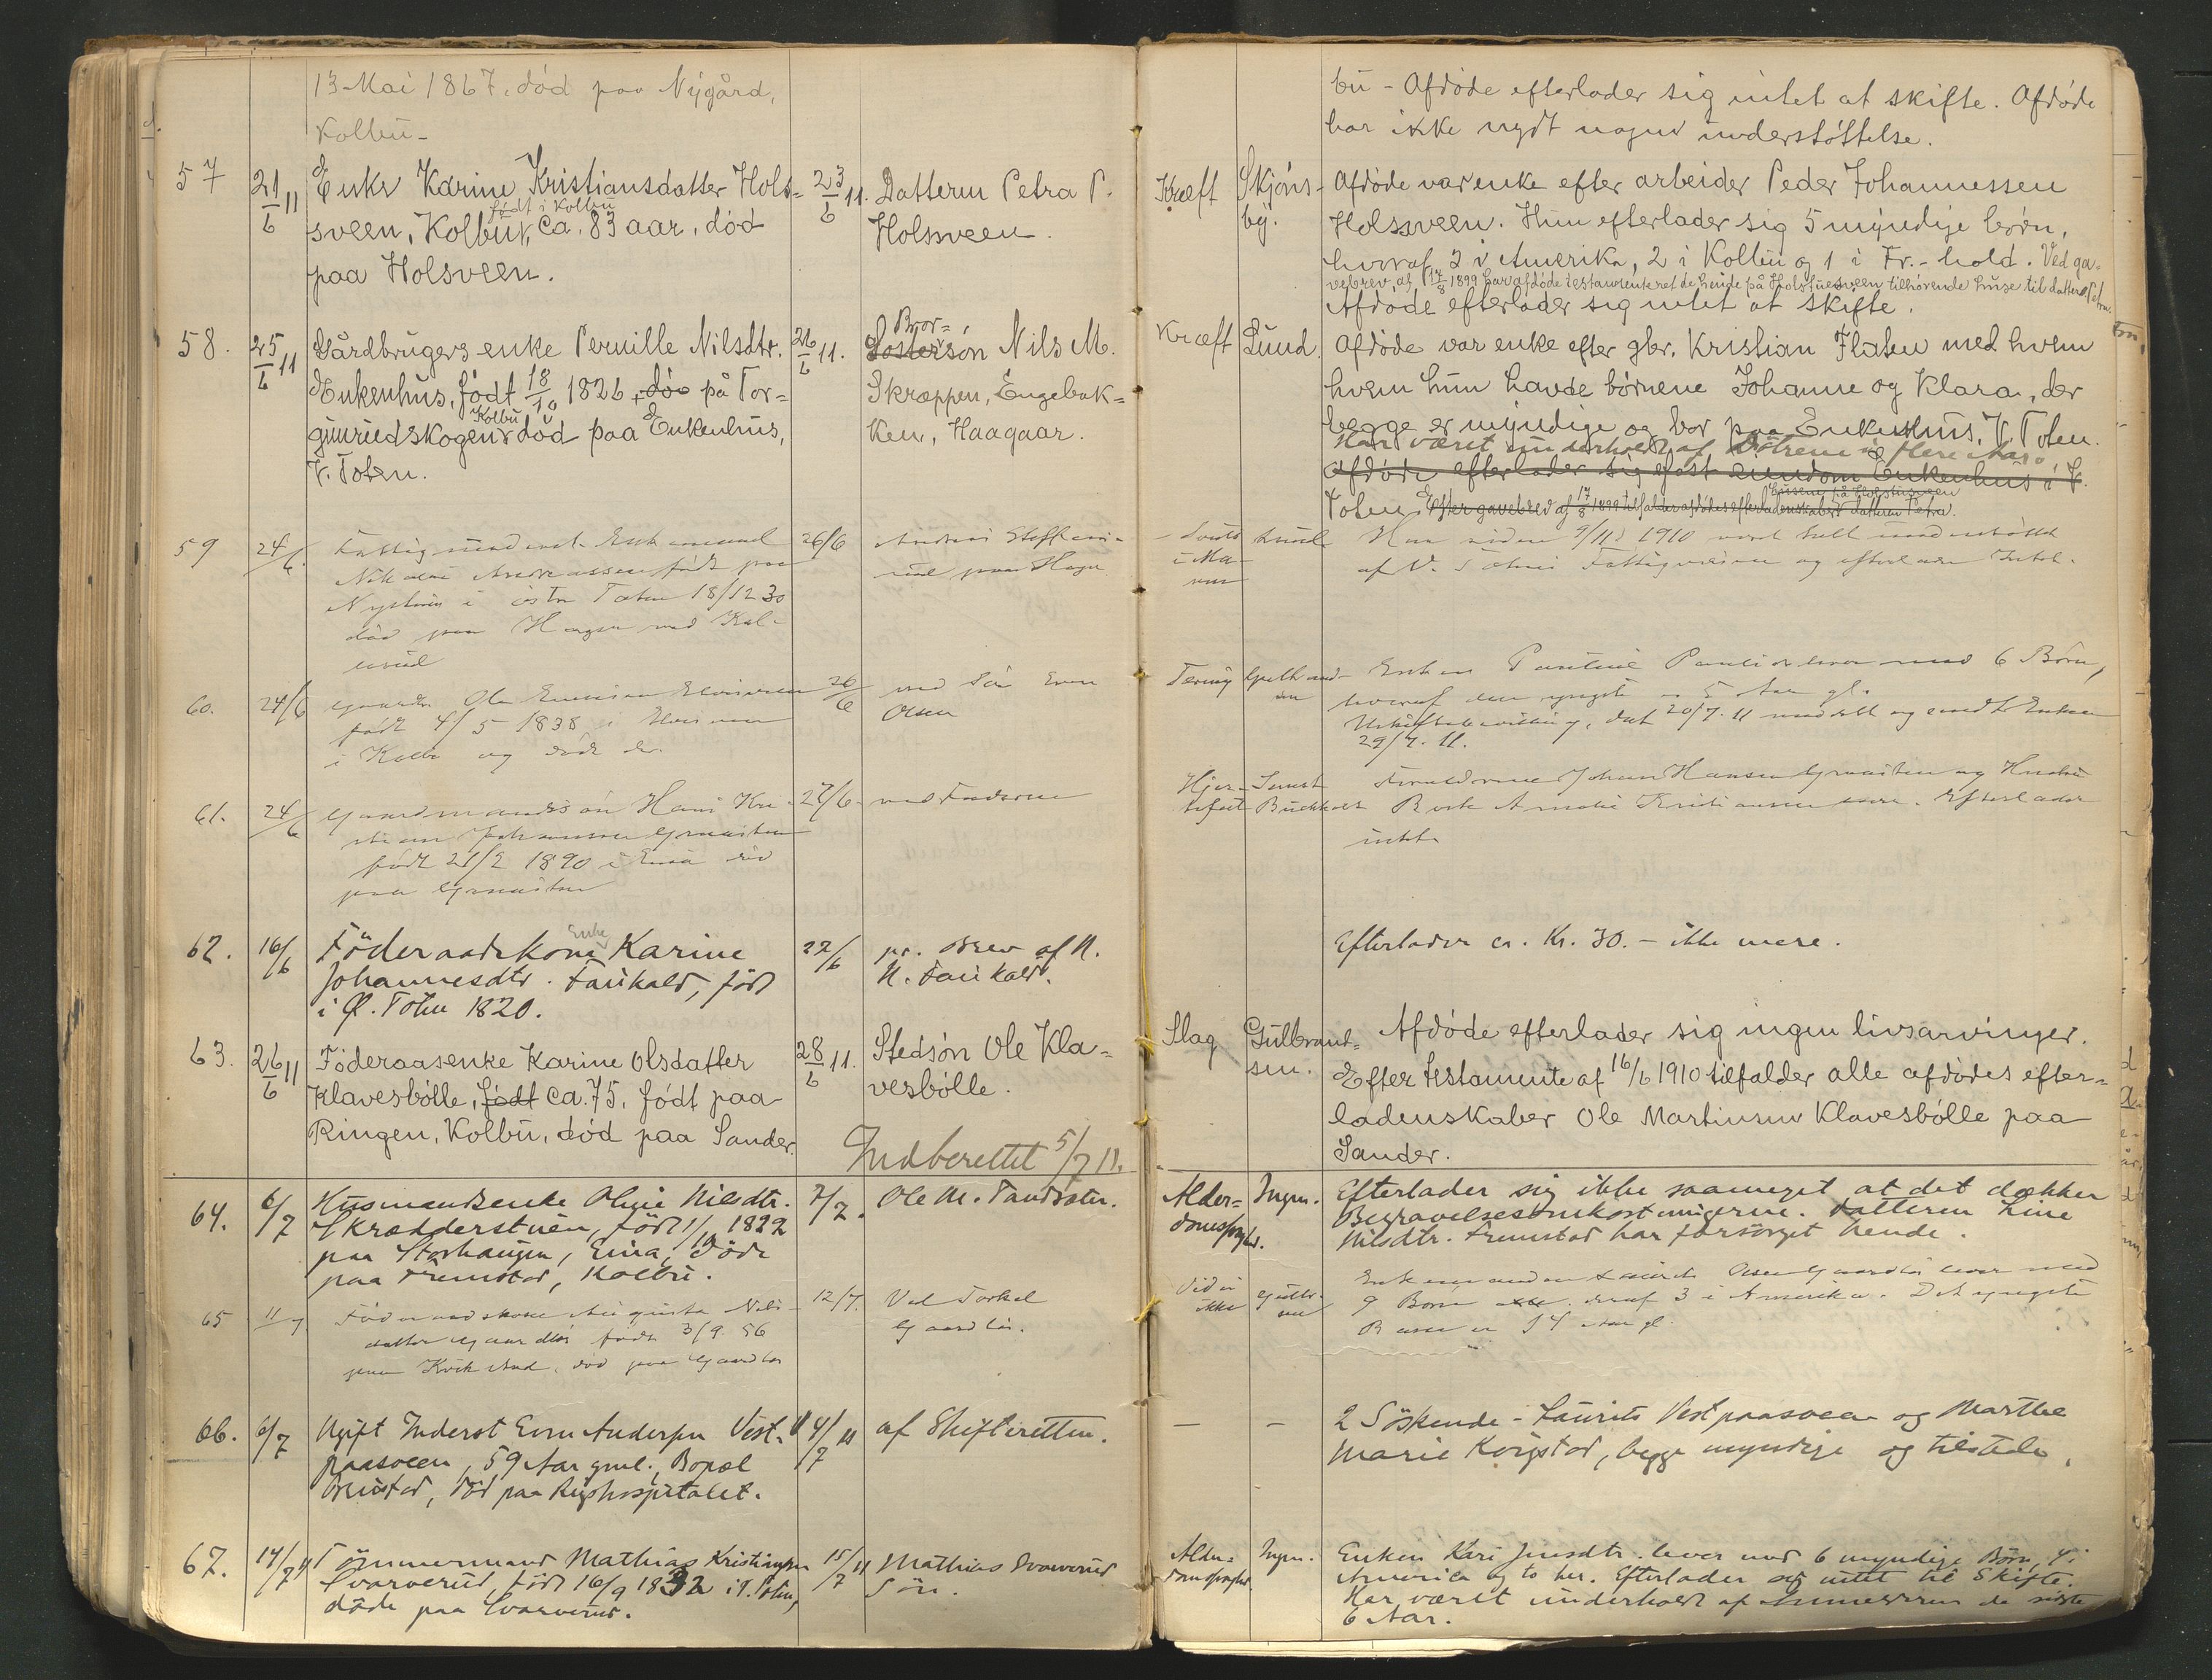 13 Mai 1867, død paa Nygård,
Kolbu-
bu - Afdøde efterlader sig intet at skifte. Afdøde
har ikke nydt nogen understøttelse.
57 21/6 11 Enke Karine Kristiansdatter Hols-
sveen, Kolbu, født i Kolbu ca. 83 aar, død
paa Holsveen.
23/6 11. Datteren Petra P.
Holssveen.
Kræft Skjøns-
by.
Afdøde var enke efter arbeider Peder Johannessen
Holssveen. Hun efterlader sig 5 myndige børn,
hvoraf 2 i Amerika, 2 i Kolbu og 1 i Fr.-hald. Ved ga-
vebrev af 17/8 1899 har afdøde testamenteret de hende på Holstuesveen tilhørende huse til datteren Petra.
Afdøde efterlader sig intet at skifte.
58. 25/6 11 Gårdbrugers enke Pernille Nilsdtr.
Enkenhus, født 18/10 1826, dø på Tor-
gunrudskogen, Kolbu død paa Enkenhus,
V. Toten.
26/6 11. Søstersøn Bror- Nils M.
Skræppen, Engebak-
ken, Haagaar.
Kræft Lund.
Afdøde var enke efter gbr. Kristian Flaten med hvem
hvem hun havde børnene Johanne og Klara, der
begge er myndige og bor paa Enkenhus, V. Toten.
Har været underholdt af Døtrene i flere Aar.
Afdøde efterlader sig fast eiendom Enkenhus i V.
Toten. Efter gavebrev af 17/8 1899 tilfalder afdødes efterladenskaber husene på Holstuesveen datteren Petra.
59 24/6 Fattigunderst. Enkemand
Nikolai Andreassen født paa
Nystuen i østr Toten 18/12 30
død paa Hagen ved Kol-
26/6
paa Hagen
Har siden 9/11 1910 været helt understøttet
af V. Totens Fattigvæsen og efterlader Intet.
60. 24/6 Gaardbr. Ole
født 4/5 1838 i
i Kolbu og død der.
26/6 ved Søn Even
Olsen
Tæring
Enken Pauline lever med 6 Børn,
hvoraf den yngste er 5 Aar gl.
20/7. 11 meddelt og sendt Enken
29/7. 11.
61. 24/6 Gaardmandssøn Hans Kri-
stian Johansen
født 21/2 1890 i Eina død
paa
27/6. ved Faderen
Hjer-
tefeil Buchholdt
Forældrene Johan Hansen og Hustru
Kristiansen lever. Efterlader
intet.
62. 16/6 Föderaadskone Enke Karine
Johannesdtr. Faukald, født
i Ø. Toten 1820.
22/6 pr. Brev af N.
N. Faukald.
Efterlader ca. Kr. 30. - ikke mere.
63. 26/6 11 Føderaasenke Karine Olsdatter
Klavesbølle, født ca. 75, født paa
Ringen, Kolbu, død paa Sander.
28/6 11. Stedsøn Ole Kla-
vesbølle.
Slag Gulbrand-
sen.
Afdøde efterlader sig ingen livsarvinger.
Efter testamente af 16/6 1910 tilfalder alle afdødes efter-
ladenskaber Ole Martinsen Klavesbølle paa
Sander.
Indberettet 5/7 11.
64. 6/7 Husmandsenke Oline Nilsdtr.
Skrædderstuen, født 1/10 1822
paa Storhaugen, Eina, døde
paa Fremstad, Kolbu.
7/7. Ole M.
Alder-
domssvaghd. Ingen.
Efterlader sig ikke saameget at det dækker
Begravelsesomkostningerne. Datteren Line
Nilsdtr. Fremstad har forsörget hende.
65 11/7 Føderaadskone Augusta Nils-
datter Gaardløs født 3/9. 56
paa død paa Gaardløs
12/7. Ved Torkel
Gaardløs.
Vides
ikke
Enkemanden Olsen Gaardløs lever med
9 Børn, deraf 3 i Amerika. Det yngste
Barn er 14 Aar gl.
66. 6/7 Ugift Inderst Even Andersen Vest-
paasveen, 59 Aar gml., Bopæl
død paa Rigshospitalet.
11/7 11 af Skifteretten.
- -
2 Söskende - Laurits Vestpaasveen og Marthe
Marie Kvigstad, begge myndige og tilstede.
67. 14/7 11 Tömmermand Mathias Kristiansen
Svarverud, født 16/9 1832 i V. Toten,
døde paa Svarverud.
15/7 11 Mathias Svarverud
Sön.
Alder-
domssvaghd. Ingen.
Enken Kari Jensdtr. lever med 6 myndige Børn, 4 i
Amerika og to her. Efterlader sig intet til Skifte.
Har været underholdt af de sidste
6 Aar.